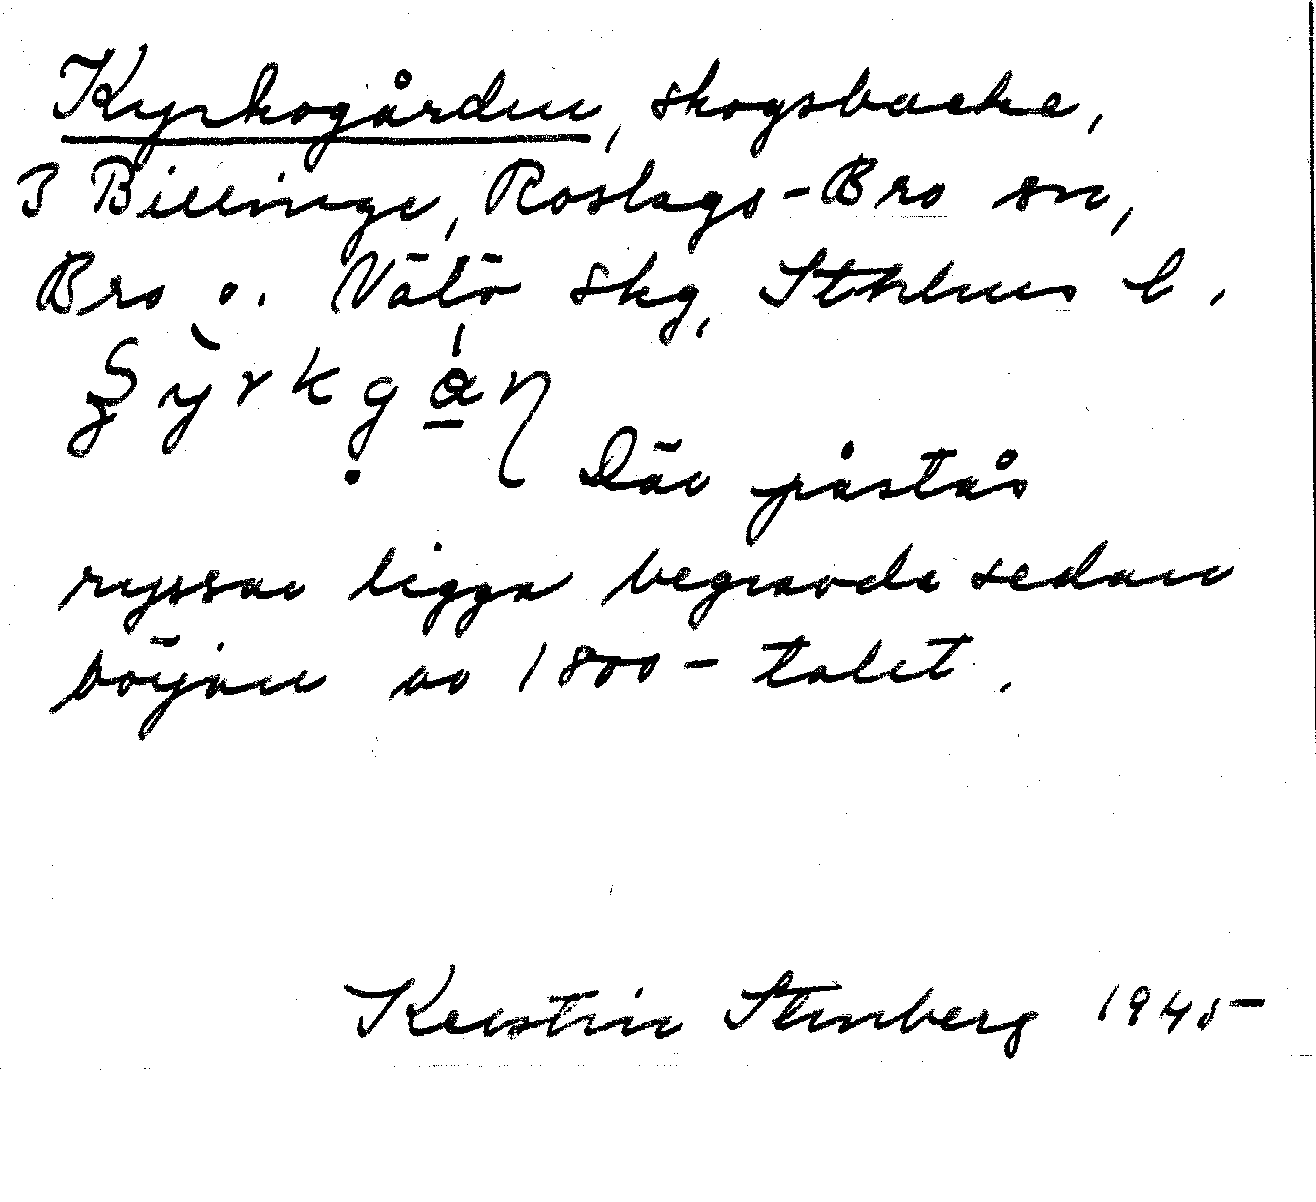 Kyrkogården, skogsbacke,
3 Billinge, Roslags-Bro sn,
Bro o. Vätö skg, Sthlms l.
Där påstås
ryssar ligga begravda sedan
början av 1800-talet.
Kerstin Stenberg 1945